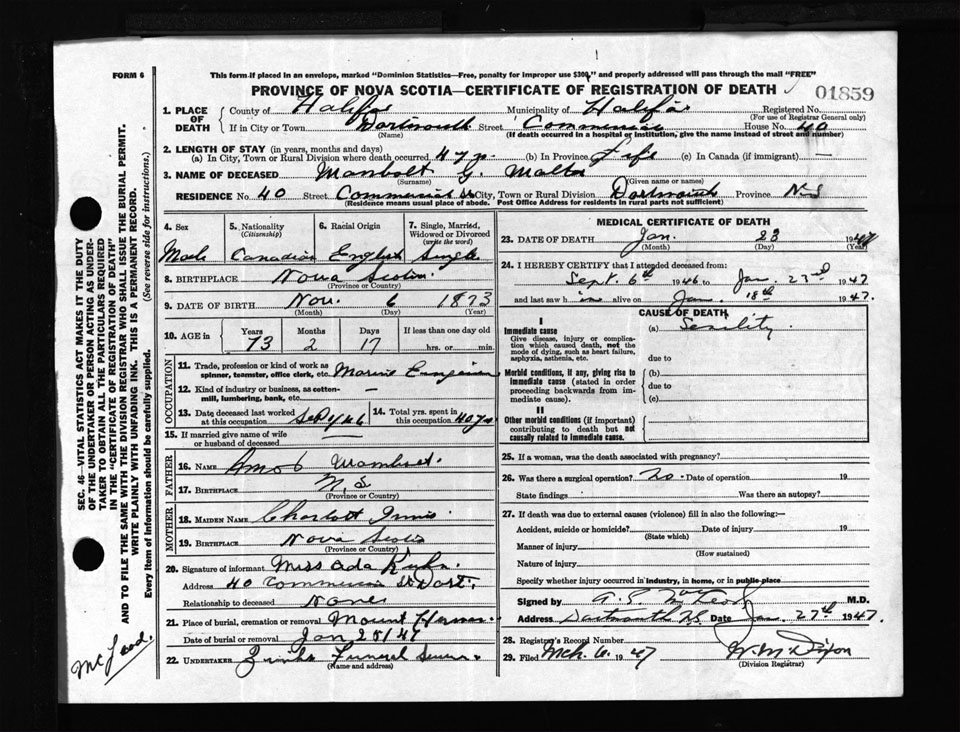 FORM 6
This form if placed in an envelope, marked "Dominion Statistics—Free, penalty for improper use $300," and properly addressed will pass through the mail "FREE"
PROVINCE OF NOVA SCOTIA—CERTIFICATE OF REGISTRATION OF DEATH
01859
1. PLACE OF DEATH
County of Halifax Municipality of Halifax Registered No.
(For use of Registrar General only)
If in City or Town Dartmouth Street Commercial House No. 40
(Name) (If death occurred in a hospital or institution, give the name instead of street and number)
2. LENGTH OF STAY (in years, months and days)
(a) In City, Town or Rural Division where death occurred 47 yrs. (b) In Province Life (c) In Canada (if immigrant) —
3. NAME OF DECEASED G.
(Surname) (Given name or names)
RESIDENCE No 40 Street Commercial St City, Town or Rural Division Dartmouth Province N.S
(Residence means usual place of abode. Post Office Address for residents in rural parts not sufficient)
4. Sex
5. Nationality (Citizenship)
6. Racial Origin
7. Single, Married, Widowed or Divorced (write the word)
Male Canadian English Single
8. BIRTHPLACE Nova Scotia.
(Province or Country)
9. DATE OF BIRTH Nov. 6 1873
(Month) (Day) (Year)
10. AGE in
Years Months Days If less than one day old
73 2 17 hrs. or min.
OCCUPATION
11. Trade, profession or kind of work as spinner, teamster, office clerk, etc. Marine Engineer
12. Kind of industry or business, as cotton-mill, lumbering, bank, etc. —
13. Date deceased last worked at this occupation Sept/46
14. Total yrs. spent in this occupation 40 yrs
15. If married give name of wife or husband of deceased
FATHER
16. NAME Amos
17. BIRTHPLACE N.S
(Province or Country)
MOTHER
18. MAIDEN NAME Charlott Innis
19. BIRTHPLACE Nova Scotia
(Province or Country)
20. Signature of informant Miss Ada Kuhn.
Address 40 Commercial St Dart.
Relationship to deceased None
21. Place of burial, cremation or removal Mount Hermon
Date of burial or removal Jan 25/47
22. UNDERTAKER Funeral Service
(Name and address)
MEDICAL CERTIFICATE OF DEATH
23. DATE OF DEATH Jan. 23 1947
(Month) (Day) (Year)
24. I HEREBY CERTIFY that I attended deceased from:
Sept. 6th 1946 to Jan 23rd 1947
and last saw him alive on Jan. 18th 1947.
CAUSE OF DEATH
I
Immediate cause
Give disease, injury or complication which caused death, not the mode of dying, such as heart failure, asphyxia, asthenia, etc.
(a) Senility.
due to
Morbid conditions, if any, giving rise to immediate cause (stated in order proceeding backwards from immediate cause).
(b)
due to
(c)
II
Other morbid conditions (if important) contributing to death but not causally related to immediate cause.
25. If a woman, was the death associated with pregnancy?
26. Was there a surgical operation? no. Date of operation 19
State findings Was there an autopsy?
27. If death was due to external causes (violence) fill in also the following:—
Accident, suicide or homicide? Date of injury 19
(State which)
Manner of injury
(How sustained)
Nature of injury
Specify whether injury occurred in industry, in home, or in public place
Signed by M.D.
Address Dartmouth N.S. Date Jan. 27th 1947
28. Registrar's Record Number
29. Filed Mch. 6. 1947 W. M. Dixon
(Division Registrar)
SEC. 46—VITAL STATISTICS ACT MAKES IT THE DUTY
OF THE UNDERTAKER OR PERSON ACTING AS UNDER-
TAKER TO OBTAIN ALL THE PARTICULARS REQUIRED
IN THE "CERTIFICATE OF REGISTRATION OF DEATH"
AND TO FILE THE SAME WITH THE DIVISION REGISTRAR WHO SHALL ISSUE THE BURIAL PERMIT.
WRITE PLAINLY WITH UNFADING INK. THIS IS A PERMANENT RECORD.
Every item of information should be carefully supplied. (See reverse side for instructions.)
McLeod.